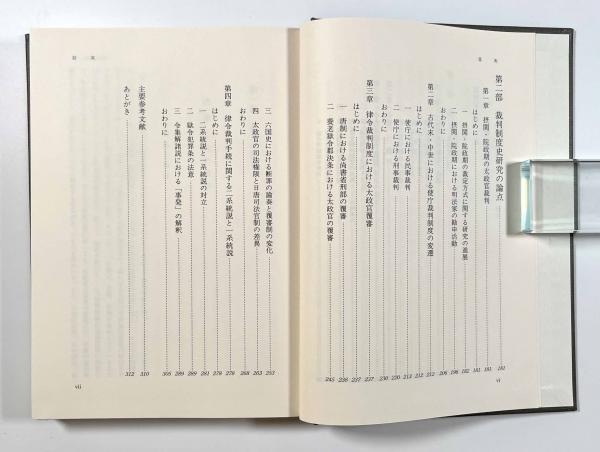 目次
第二部 裁判制度史研究の論点 181
第一章 摂関・院政期の太政官裁判 181
はじめに 181
一 摂関・院政期の裁定方式に関する研究の進展 182
二 摂関・院政期における明法家の勘申活動 196
おわりに 206
第二章 古代末・中世における使庁裁判制度の変遷 212
はじめに 212
一 使庁における民事裁判 213
二 使庁における刑事裁判 220
おわりに 230
第三章 律令裁判制度における太政官覆審 237
はじめに 237
一 唐制における尚書省刑部の覆審 238
二 養老獄令郡決条における太政官の覆審 245
vi
目次
三 六国史における断罪の論奏と覆審制の変化 253
四 太政官の司法権限と日唐司法官制の差異 263
おわりに 268
第四章 律令裁判手続に関する二系統説と一系統説 278
はじめに 278
一 二系統説と一系統説の対立 281
二 獄令犯罪条の法意 289
三 令集解諸説における「事発」の解釈 299
おわりに 305
主要参考文献 310
あとがき 312
vii